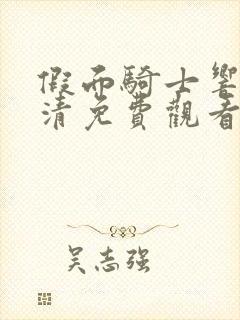 假面騎士響
清免費觀看
吴志强